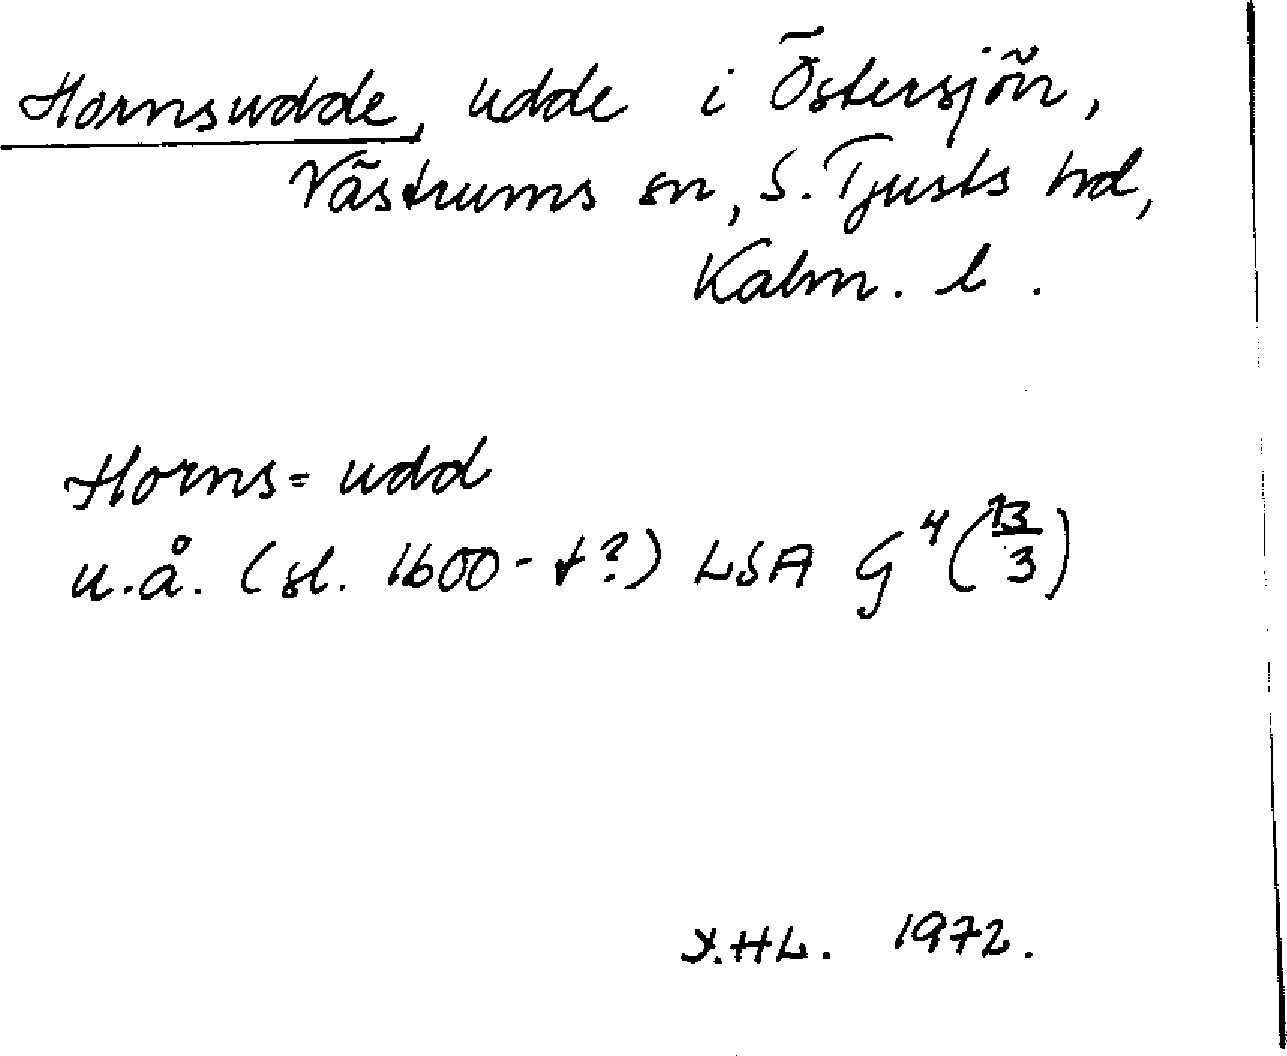 Hornsudde, udde i Östersjön,
Västrums sn, S. Tjusts hd,
Kalm. l.
Horns= udd
u.å. (sl. 1600-t?) LSA G⁴(13/3)
Y.HL. 1972.